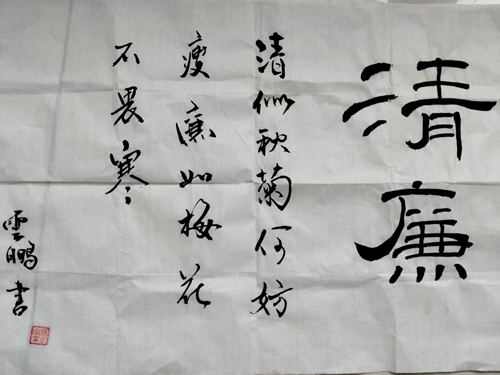 清廉
清似秋菊何妨
瘦廉如梅花
不畏寒
雲鵬書